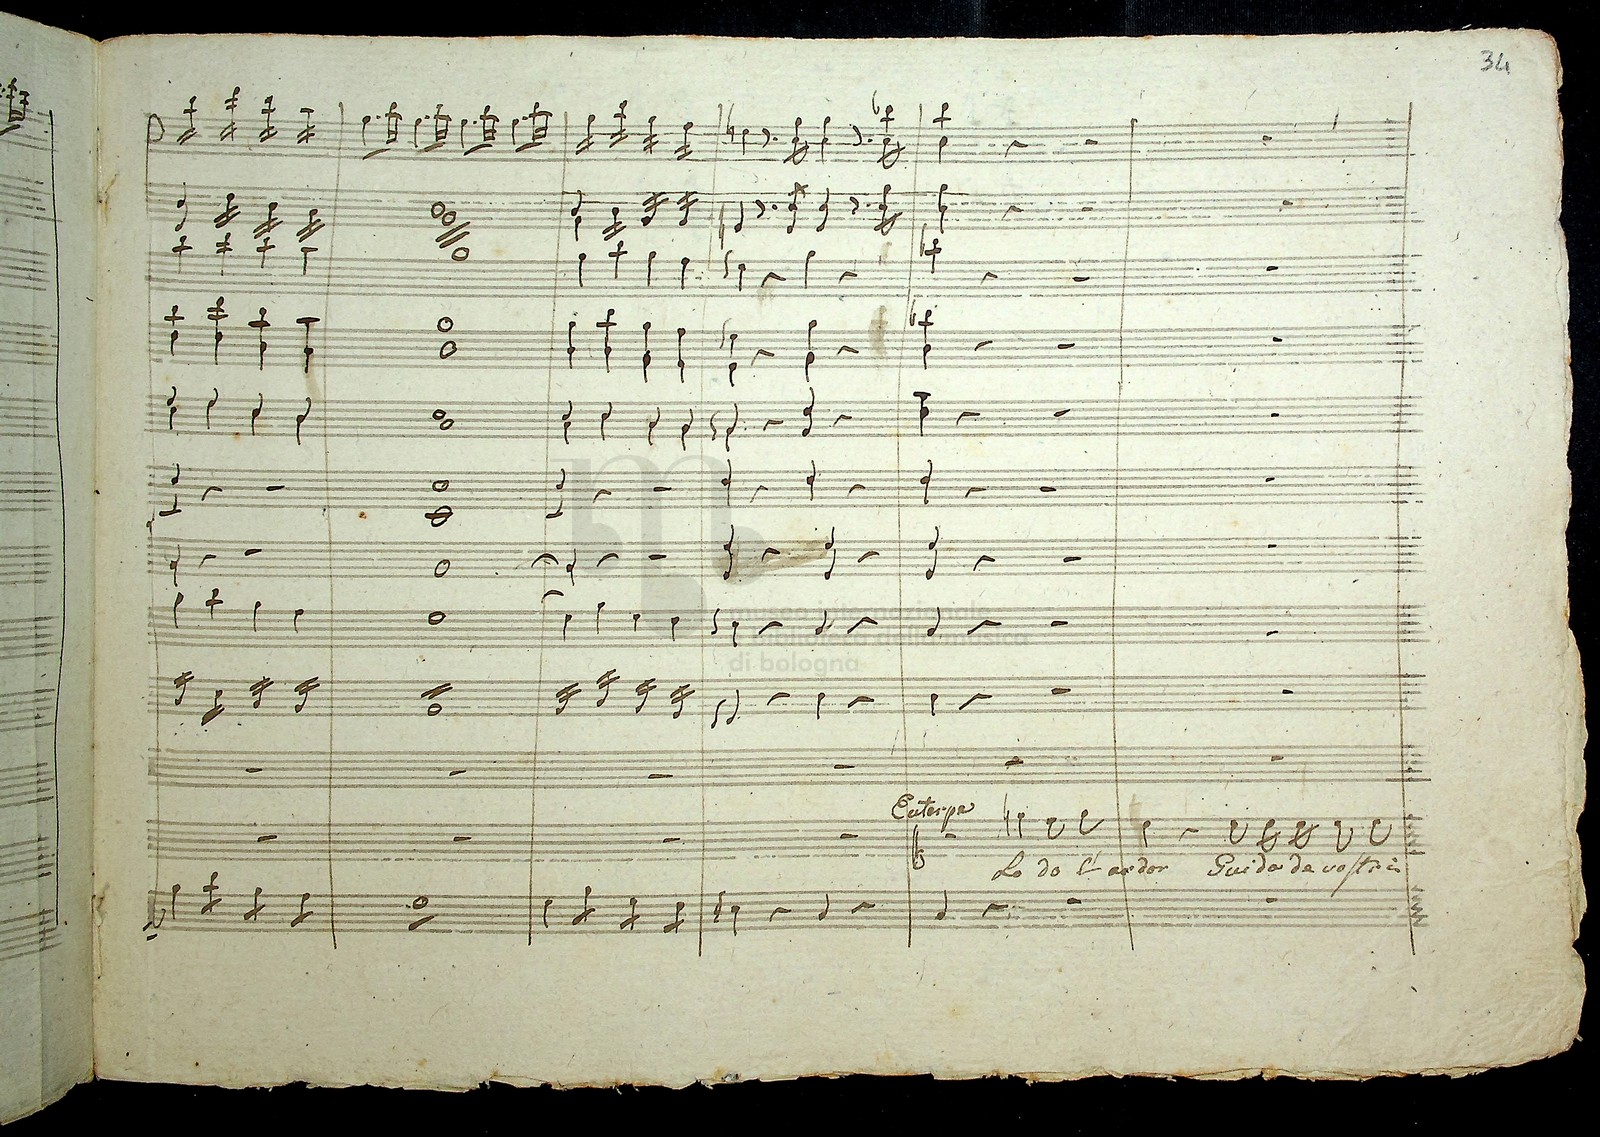 34
museo internazionale
e biblioteca della musica
di bologna
Euterpe
Lo do l'ardor Guida de vostri